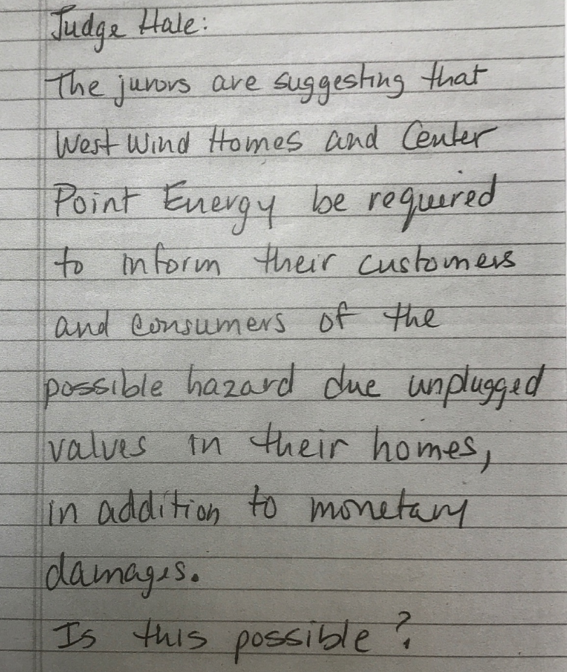 Judge Hale:
The jurors are suggesting that
West Wind Homes and Center
Point Energy be required
to inform their customers
and consumers of the
possible hazard due unplugged
valves in their homes,
in addition to monetary
damages.
Is this possible?